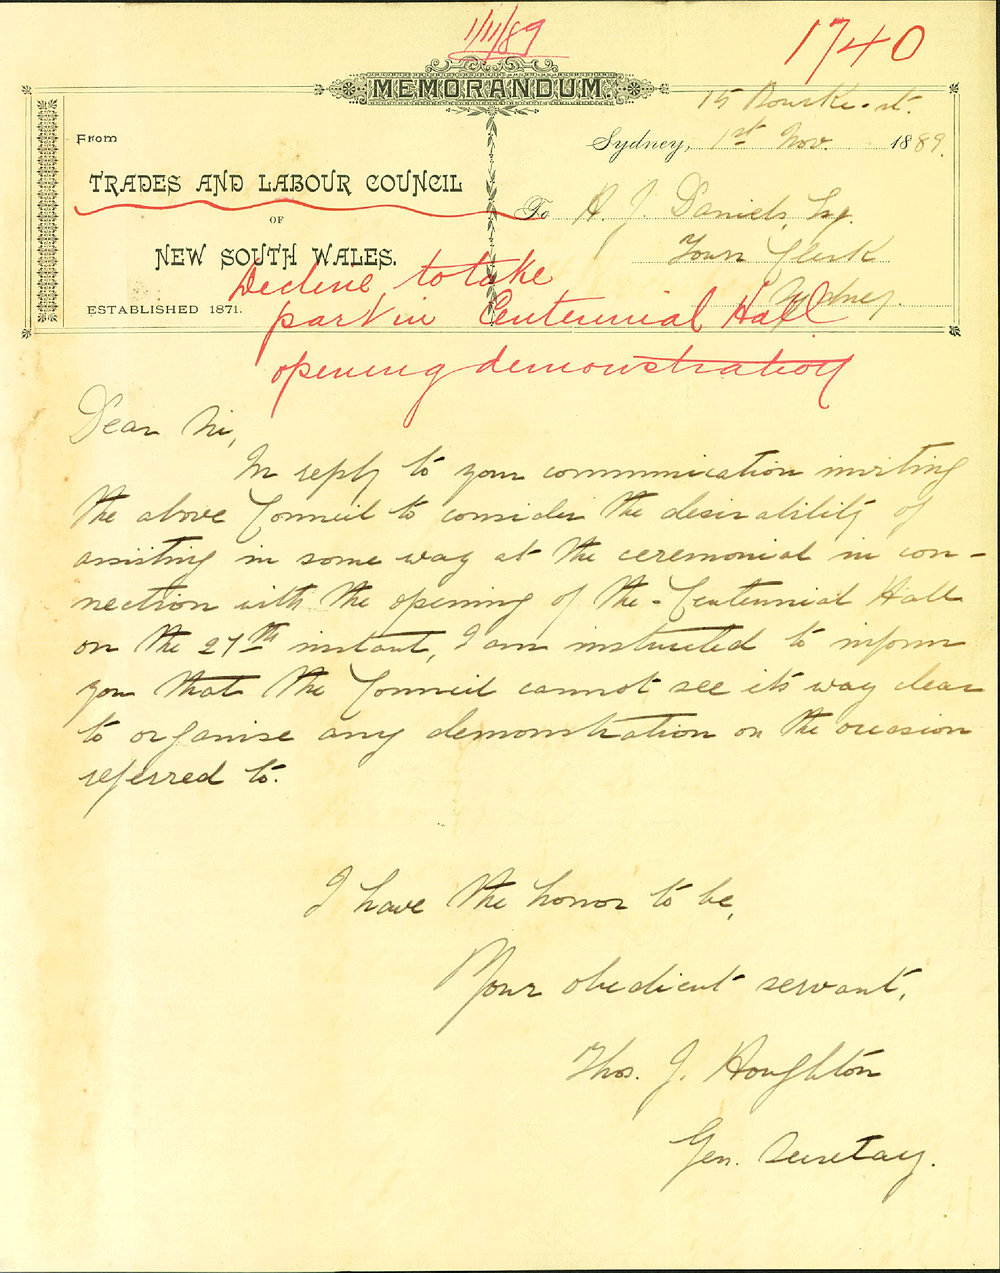 1/11/89
1740
MEMORANDUM.
15 Bourke-st.
From
Sydney, 1st Nov. 1889.
TRADES AND LABOUR COUNCIL
OF
NEW SOUTH WALES.
ESTABLISHED 1871.
To H. J. Daniels, Esq.
Town Clerk
Sydney.
Decline to take
part in Centennial Hall
opening demonstration
Dear Sir,
In reply to your communication inviting
the above Council to consider the desirability of
assisting in some way at the ceremonial in con-
nection with the opening of the Centennial Hall
on the 27th instant, I am instructed to inform
you that the Council cannot see its way clear
to organise any demonstration on the occasion
referred to.
I have the honor to be,
Your obedient servant,
Thos. J. Houghton
Gen. Secretary.